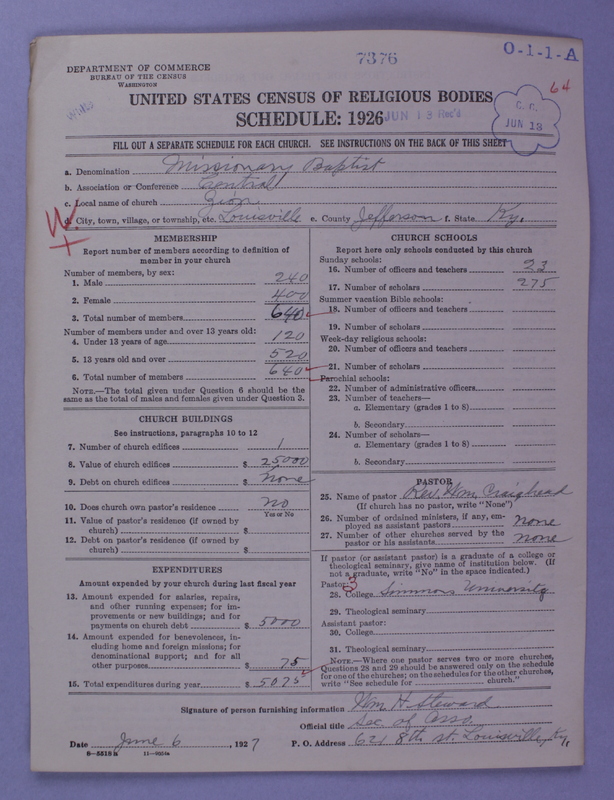 7376
O-1-1-A
DEPARTMENT OF COMMERCE
BUREAU OF THE CENSUS
WASHINGTON
64
UNITED STATES CENSUS OF RELIGIOUS BODIES
SCHEDULE: 1926
JUN 13 Rec'd
C. C.
JUN 13
FILL OUT A SEPARATE SCHEDULE FOR EACH CHURCH. SEE INSTRUCTIONS ON THE BACK OF THIS SHEET
a. Denomination Missionary Baptist
b. Association or Conference Central
c. Local name of church Zion
d. City, town, village, or township, etc. Louisville e. County Jefferson f. State Ky.
MEMBERSHIP
Report number of members according to definition of member in your church
Number of members, by sex:
1. Male 240
2. Female 400
3. Total number of members 640
Number of members under and over 13 years old:
4. Under 13 years of age 120
5. 13 years old and over 520
6. Total number of members 640
NOTE.—The total given under Question 6 should be the same as the total of males and females given under Question 3.
CHURCH BUILDINGS
See instructions, paragraphs 10 to 12
7. Number of church edifices 1
8. Value of church edifices $ 25000
9. Debt on church edifices $ None
10. Does church own pastor's residence no
Yes or No
11. Value of pastor's residence (if owned by church) $
12. Debt on pastor's residence (if owned by church) $
EXPENDITURES
Amount expended by your church during last fiscal year
13. Amount expended for salaries, repairs, and other running expenses; for improvements or new buildings; and for payments on church debt $ 5000
14. Amount expended for benevolences, including home and foreign missions; for denominational support; and for all other purposes $ 75
15. Total expenditures during year $ 5075
CHURCH SCHOOLS
Report here only schools conducted by this church
Sunday schools:
16. Number of officers and teachers 23
17. Number of scholars 275
Summer vacation Bible schools:
18. Number of officers and teachers
19. Number of scholars
Week-day religious schools:
20. Number of officers and teachers
21. Number of scholars
Parochial schools:
22. Number of administrative officers
23. Number of teachers—
a. Elementary (grades 1 to 8)
b. Secondary
24. Number of scholars—
a. Elementary (grades 1 to 8)
b. Secondary
PASTOR
25. Name of pastor Rev. Wm. Craighead
(If church has no pastor, write "None")
26. Number of ordained ministers, if any, employed as assistant pastors None
27. Number of other churches served by the pastor or his assistants None
If pastor (or assistant pastor) is a graduate of a college or theological seminary, give name of institution below. (If not a graduate, write "No" in the space indicated.)
Pastor: 3
28. College Simmons University
29. Theological seminary
Assistant pastor:
30. College
31. Theological seminary
NOTE.—Where one pastor serves two or more churches, Questions 28 and 29 should be answered only on the schedule for one of the churches; on the schedules for the other churches, write "See schedule for church."
Signature of person furnishing information Wm H. Steward
Official title Sec. of Asso.
Date June 6, 1927 P. O. Address 621 8th st. Louisville, Ky.